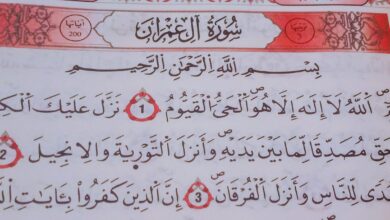 آياتها 200 سُورَةُ آلِ عِمْرَانَ
بِسْمِ اللَّهِ الرَّحْمَٰنِ الرَّحِيمِ
اللَّهُ لَا إِلَٰهَ إِلَّا هُوَ الْحَيُّ الْقَيُّومُ 1 نَزَّلَ عَلَيْكَ
مُصَدِّقًا لِّمَا بَيْنَ يَدَيْهِ وَأَنزَلَ التَّوْرَاةَ وَالْإِنجِيلَ 2
لِّلنَّاسِ وَأَنزَلَ الْفُرْقَانَ 3 إِنَّ الَّذِينَ كَفَرُوا بِـَٔايَاتِ